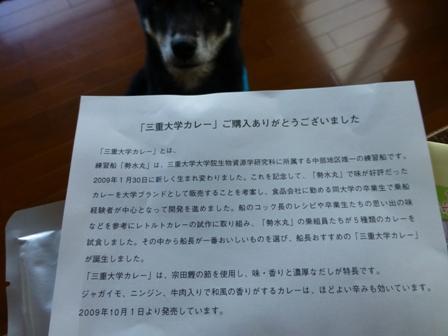 「三重大学カレー」ご購入ありがとうございました
「三重大学カレー」とは、
練習船「勢水丸」は、三重大学大学院生物資源学研究科に所属する中部地区唯一の練習船です。
2009年1月30日に新しく生まれ変わりました。これを記念して、「勢水丸」で味が好評だった
カレーを大学ブランドとして販売することを考案し、食品会社に勤める同大学の卒業生で乗船
経験者が中心となって開発を進めました。船のコック長のレシピや卒業生たちの思い出の味
などを参考にレトルトカレーの試作に取り組み、「勢水丸」の乗組員たちが5種類のカレーを
試食しました。その中から船長が一番おいしいものを選び、船長おすすめの「三重大学カレー」
が誕生しました。
「三重大学カレー」は、宗田鰹の節を使用し、味・香りと濃厚なだしが特長です。
ジャガイモ、ニンジン、牛肉入りで和風の香りがするカレーは、ほどよい辛みも効いています。
2009年10月1日より発売しています。